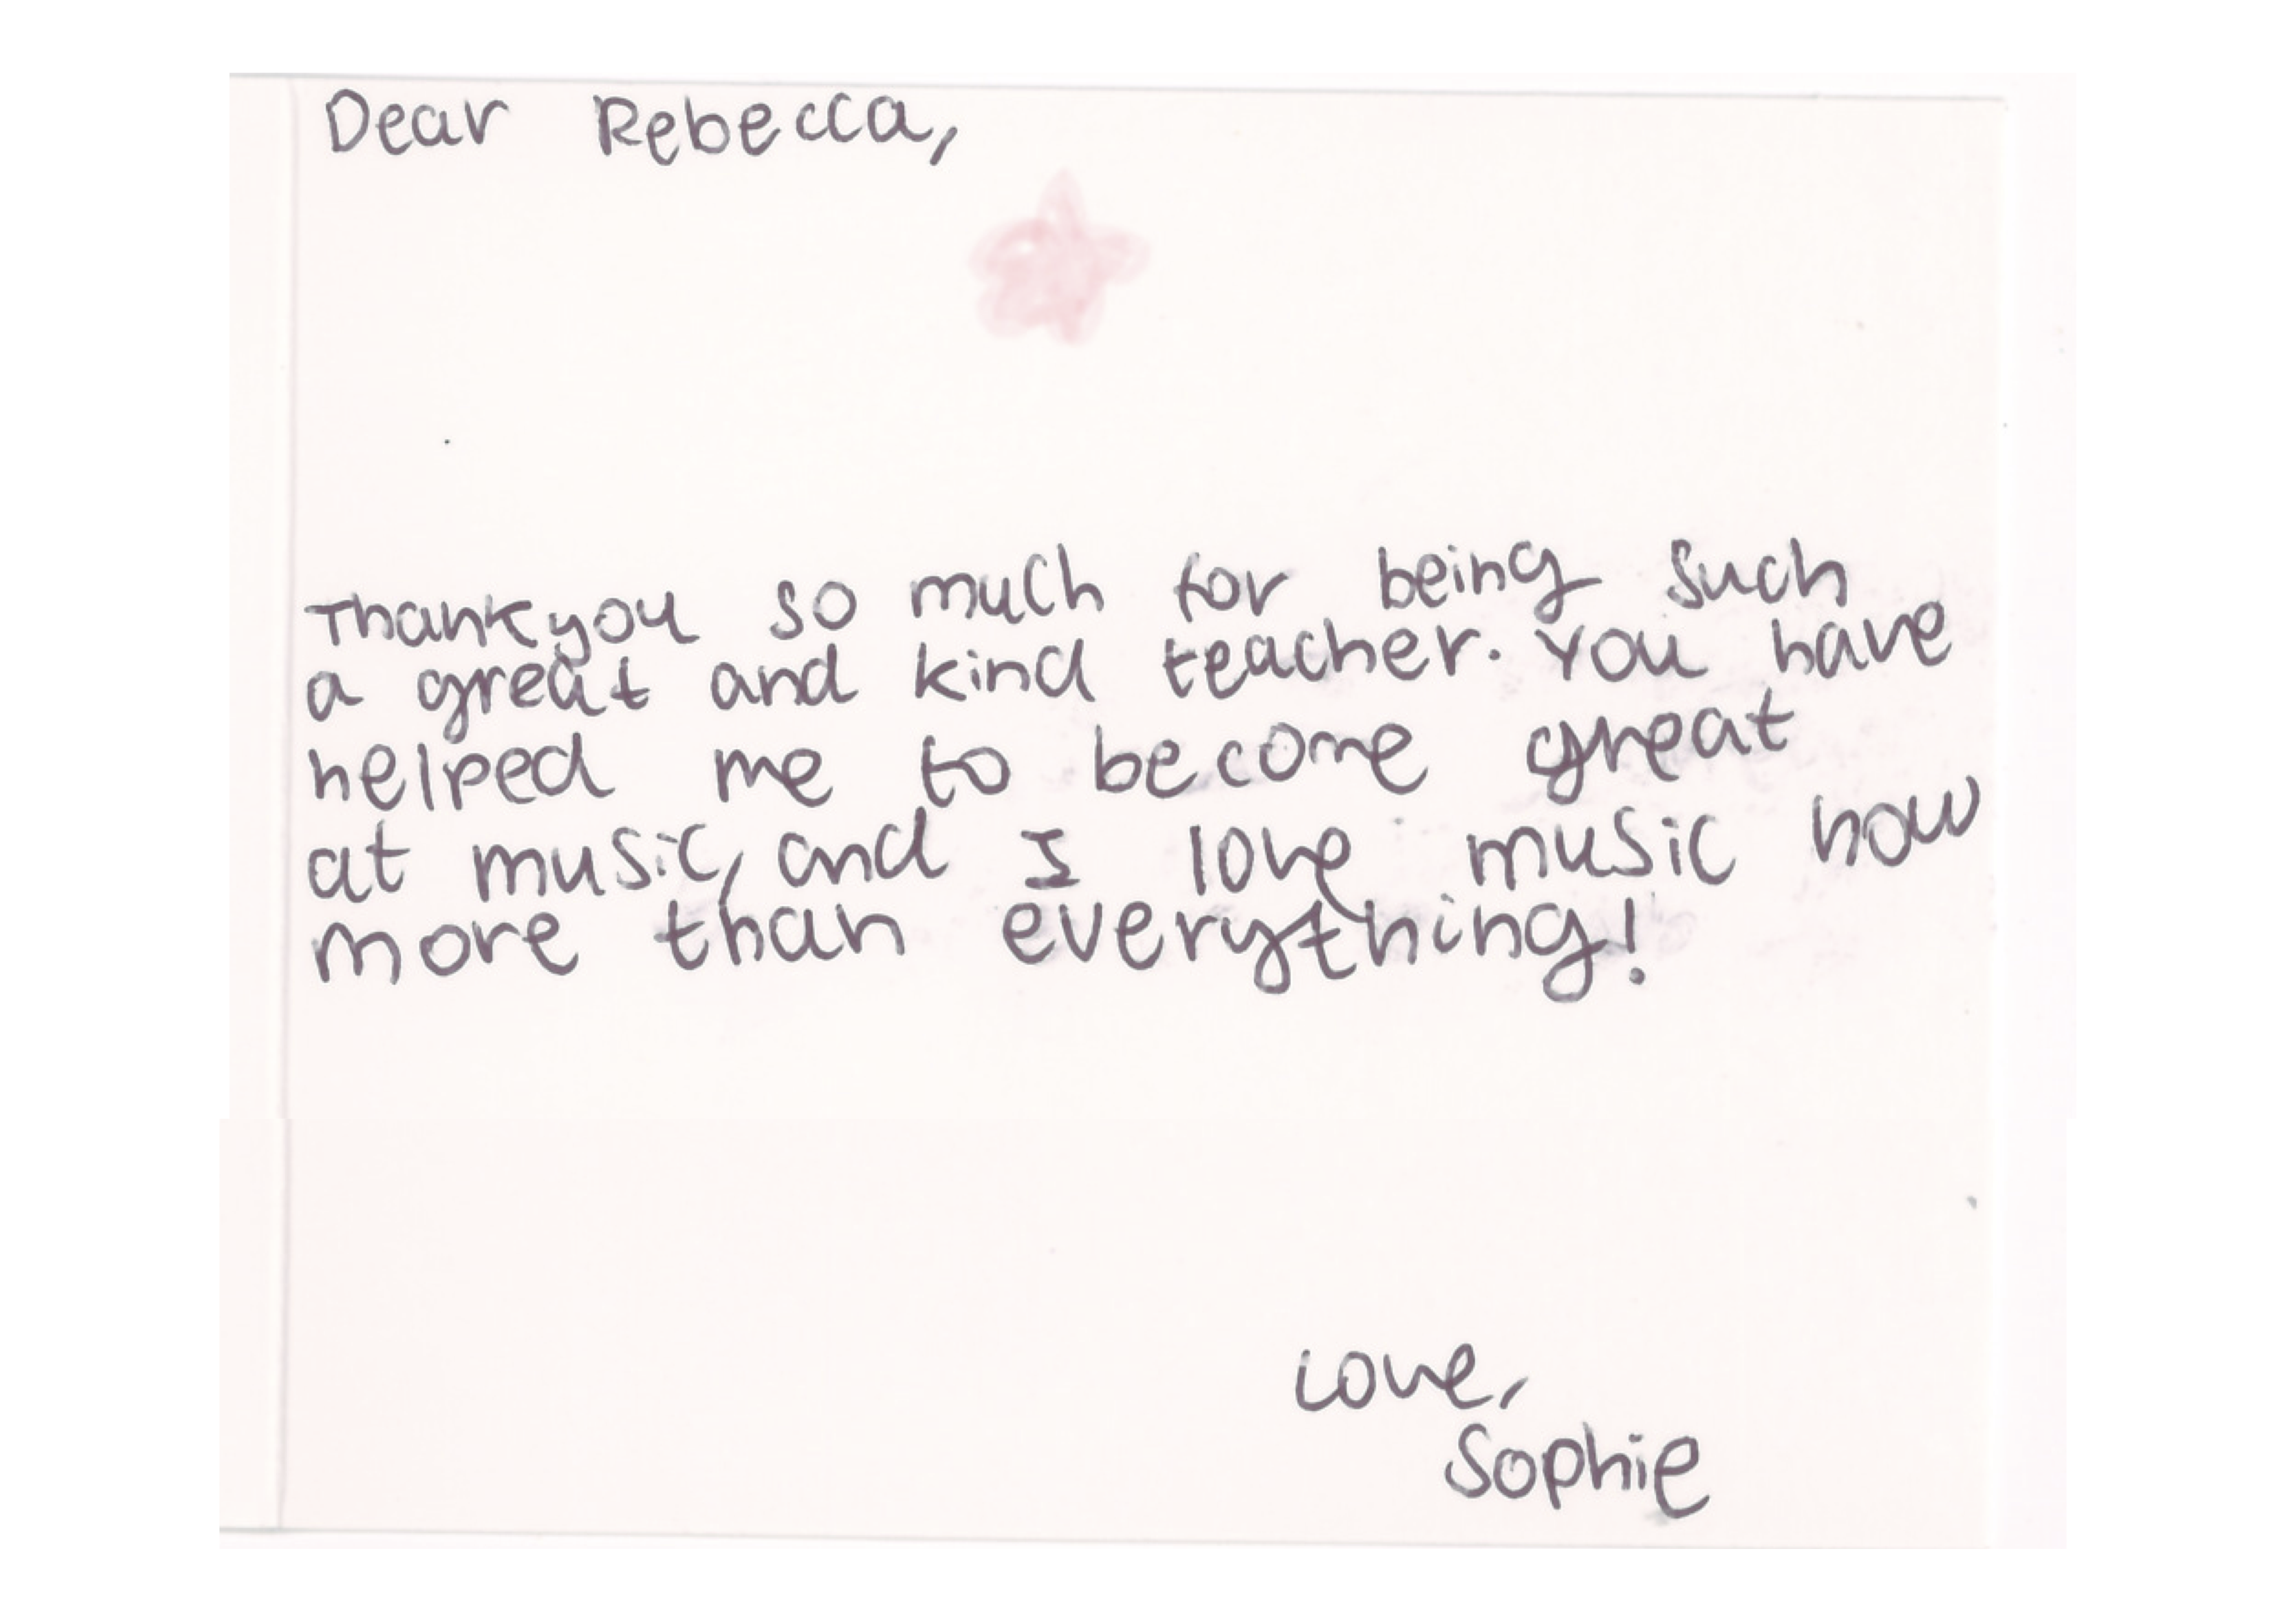 Dear Rebecca,
Thankyou so much for being such
a great and kind teacher. You have
helped me to become great
at music, and I love music now
more than everything!
Love,
Sophie